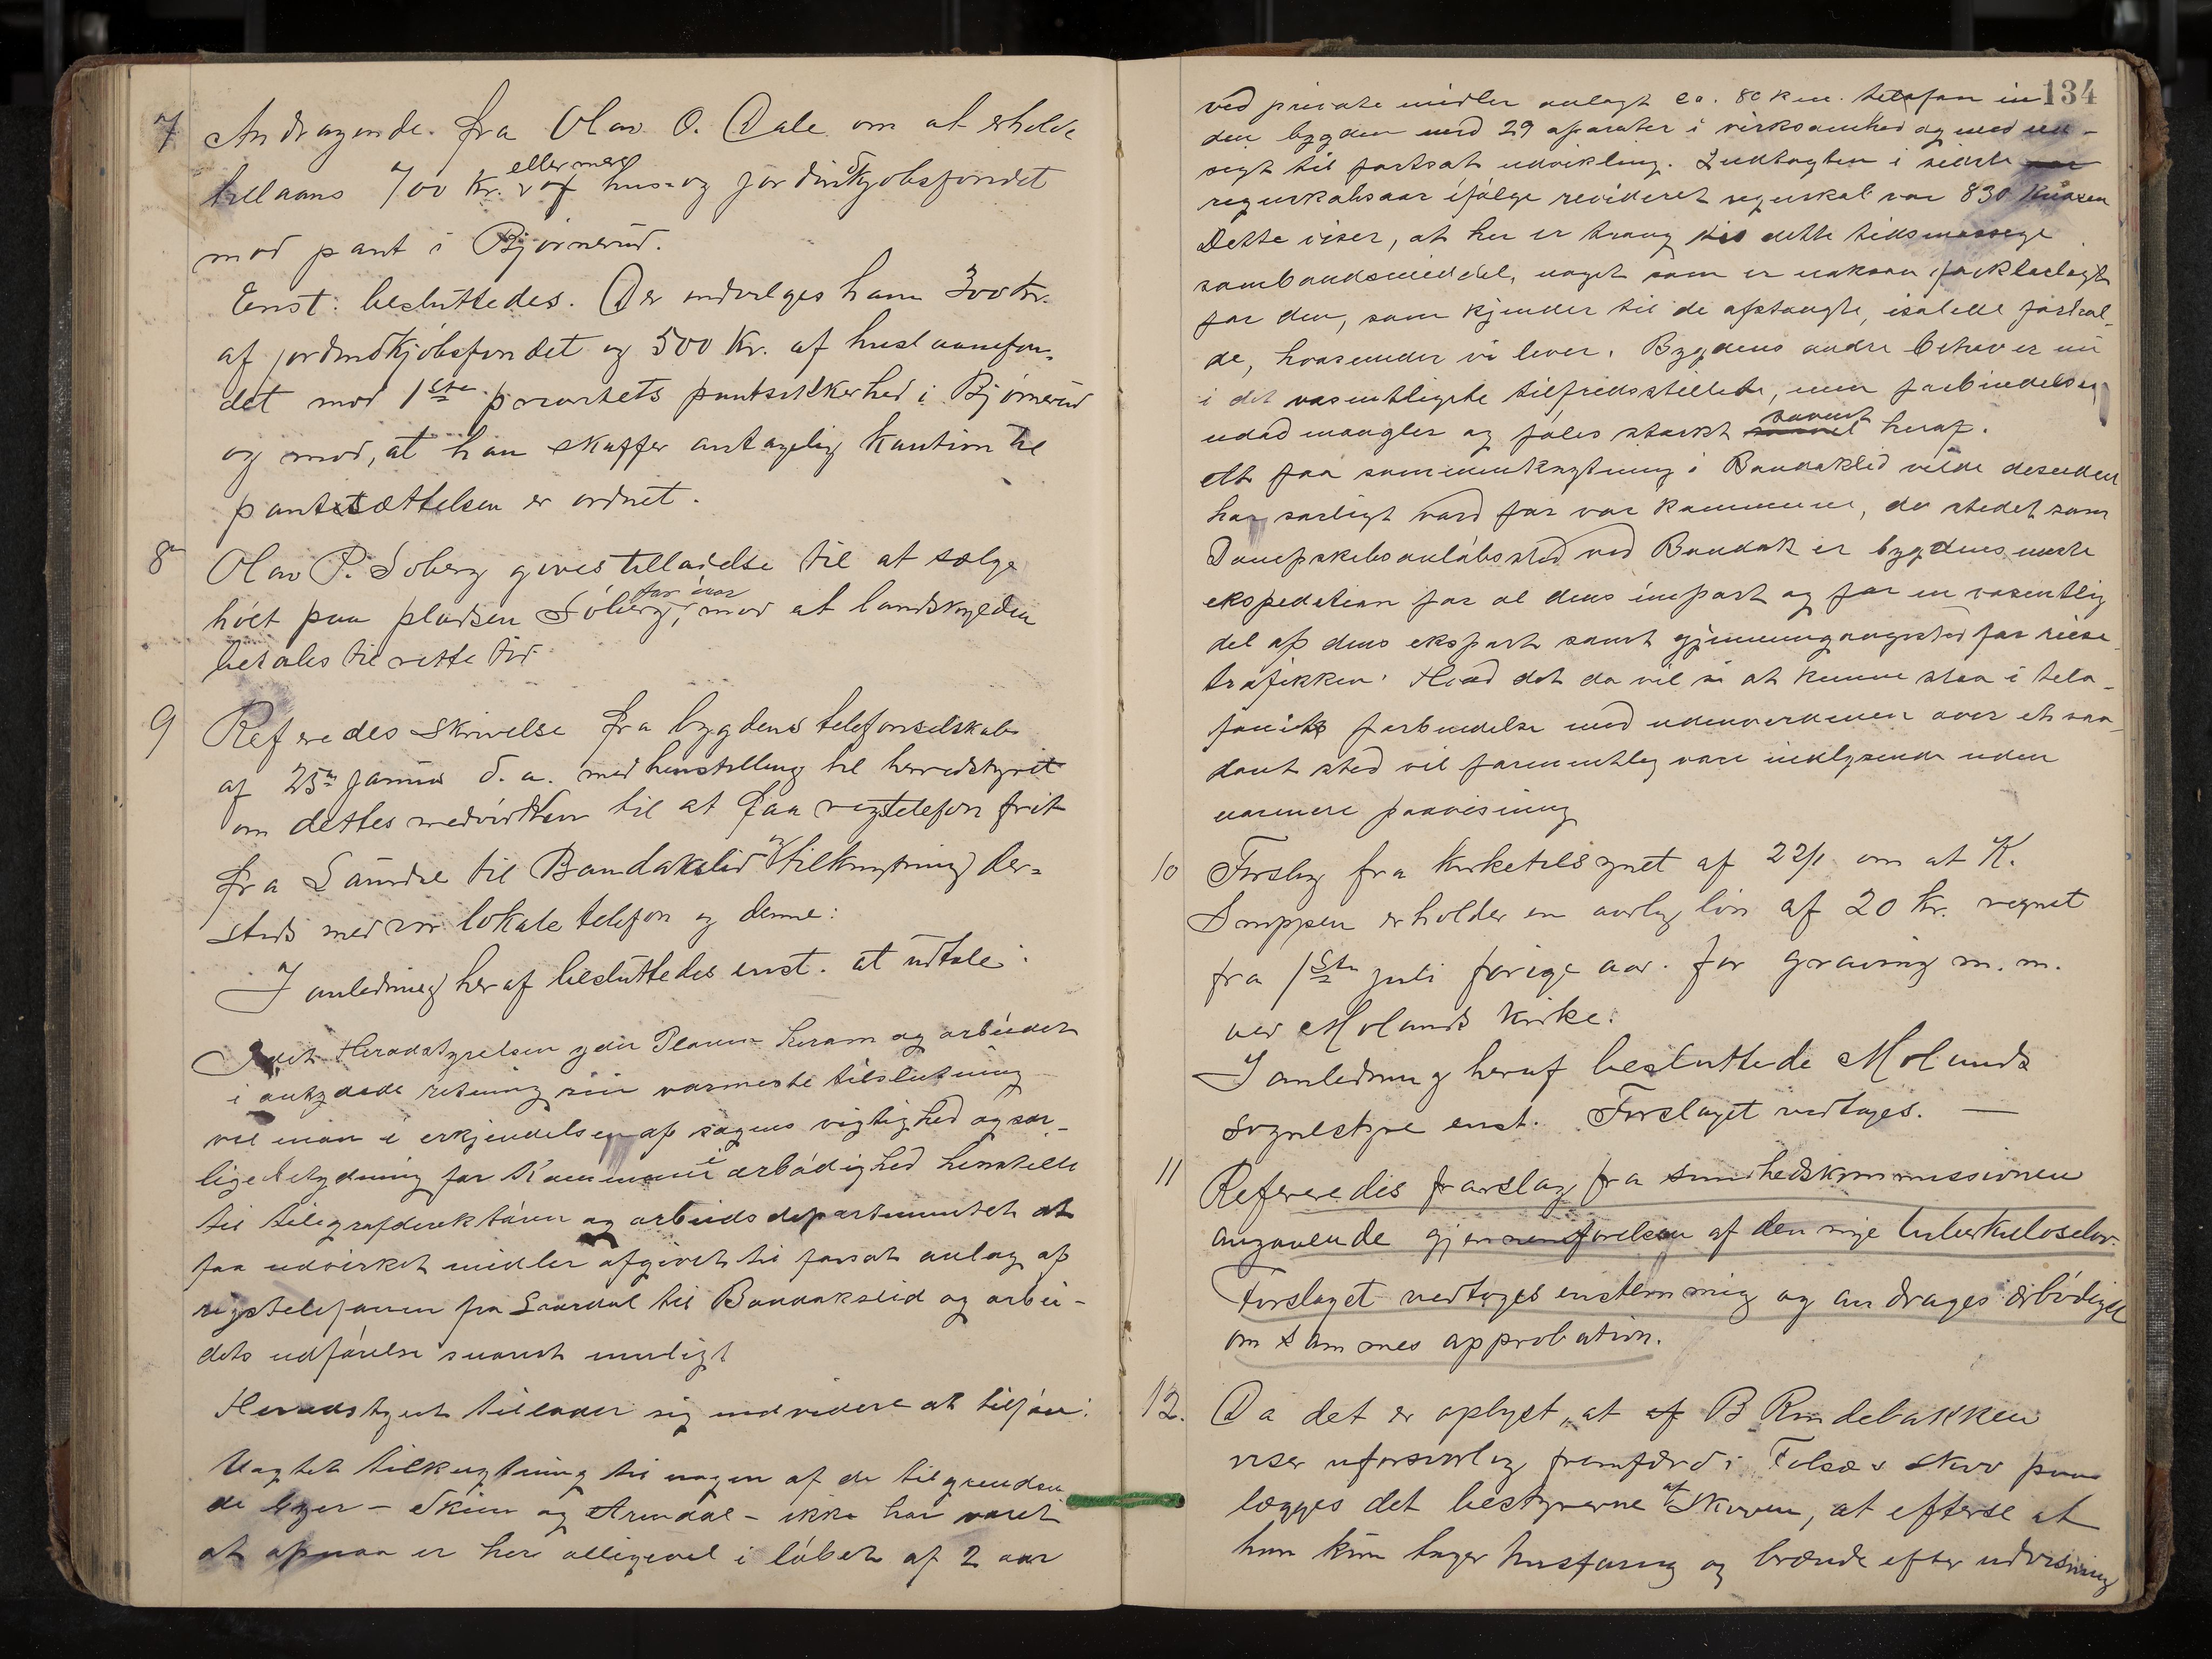 7 Andragende fra Olav O. Dale om at erholde
tillaans 700 Kr. eller mer af hus- og jordindkjøbsfondet
mod pant i Bjørnerud.
Enst: besluttedes. Der indvilges ham 300 Kr.
af jordindkjøbsfondet og 500 Kr. af huslaanefon-
det mod 1ste prioritets pantsikkerhed i Bjørnerud
og mod, at han skaffer antagelig kaution til
pantsættelsen er ordnet.
8 Olav P. Soberg gives tilladelse til at sælge
høiet paa pladsen Soberg, for iaar mod at landskylden
betales til rette tid.
9 Referedes skrivelse fra bygdens telefonselskab
af 25de januar d. a. med henstilling til herredstyret
om dettes medvirken til at faa rigstelefon frit
fra Laurdal til Bandakslid og tilknytning der-
steds med vor lokale telefon og denne:
I anledning heraf besluttedes enst. at udtale:
Idet Herredstyrelsen yder Planen herom og arbeidet
i antydede retning sin varmeste tilslutning
vil man i erkjendelsen af sagens vigtighed og sær-
lige betydning for Kommunen i ærbødighed henstille
til telegrafdirektøren og arbeidsdepartementet at
faa udvirket midler afgivet til forsat anlæg af
rigstelefonen fra Laardal til Bandakslid og arbei-
dets udførelse snarest muligt
Herredstyret tillader sig endvidere at tilføie:
Uagtet tilknytning til nogen af de tilgrændsen
de byer - Skien og Arendal - ikke har været
at opnaa er her alligevel i løbet af 2 aar
134
ved private midler anlagt ca. 80 km. telefon in
den bygden med 29 aparater i virksomhed og med ud-
sigt til fortsat udvikling. Indtægten i sidste
regnskabsaar ifølge revideret regnskab var 830 kroner
Dette viser, at her er trang til dette tidsmæssige
sambandsmiddel, noget som er uaksaa forklarligt
for den, som kjender til de afstængte, isolerte forhol-
de, hvorunder vi lever. Bygdens andre behov er nu
i det væsentligste tilfredsstillede, men forbindelsen
udad mangler og føles stærkt savnet heraf.
At faa sammenknytning i Bandakslid vilde desuden
have særligt værd for vor kommune, da stedet som
Dampskibsanløbssted ved Bandak er bygdens meste
ekspedition for al dens import og for en væsentlig
del af dens eksport samt gjennemgangssted for reise-
trafikken. Hvad det da vil si at kunne staa i tele-
fonisk forbindelse med udenverdenen over et saa-
dant sted vil formentlig være indlysende uden
nærmere paavisning
10 Forslag fra kirketilsynet af 22/1 om at K.
Snippen erholder en aarlig løn af 20 kr. regnet
fra 1ste juli forige aar. for graving m. m.
ved Molands kirke.
I anledning heraf besluttede Molands
sognestyre enst. Forslaget vedtages. —
11 Referedes forslag fra sundhedskommissionen
angaaende gjennemførelsen af den nye tuberkuloselov.
Forslaget vedtoges enstemmig og andrages ærbødigst
om sammes approbation.
12. Da det er oplyst, at af B Rindebakken
viser uforsvarlig fremfærd i Folsæ skov paa
lægges det bestyrerne af Skoven, at efterse at
han kun tager husfang og brænde efter udvisning